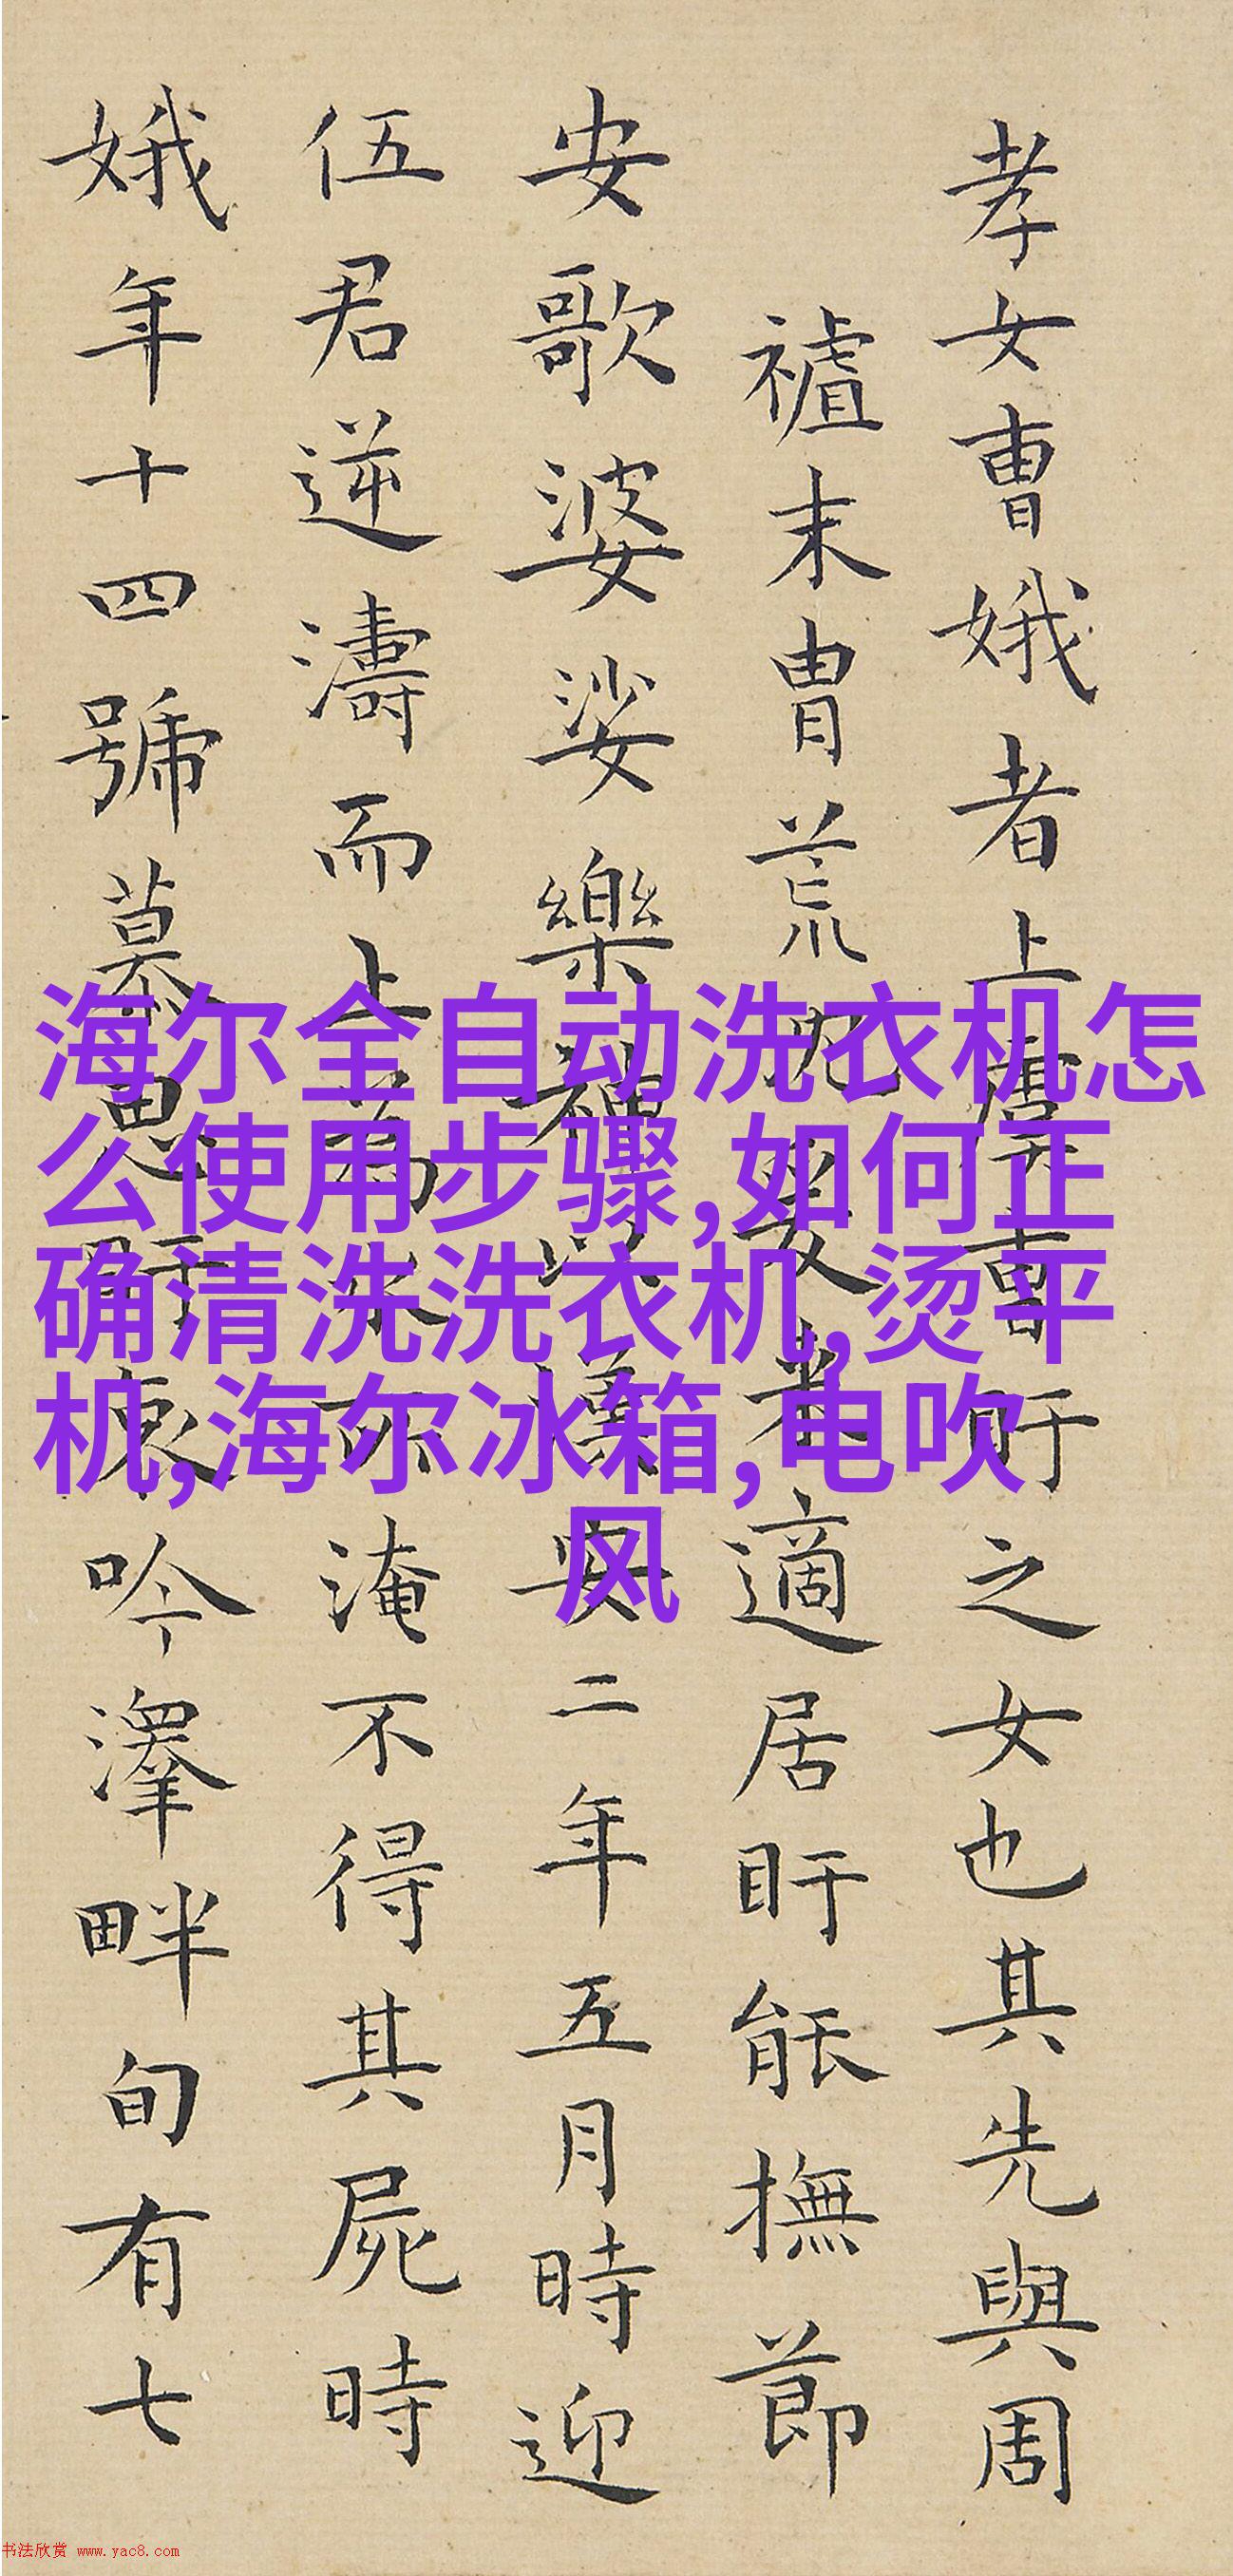 孝女曹娥者上虞曹盱之女也其先與周
祖末冑荒沉爰茲適居盱能撫節
安歌婆娑樂神以漢安二年五月時迎
伍君逆濤而上為水所淹不得其屍時
娥年十四號慕思盱哀吟澤畔旬有七
海尔全自动洗衣机怎
么使用步骤,如何正
确清洗洗衣机,烫平
机,海尔冰箱,电吹
风
书法欣赏 www.yac8.com